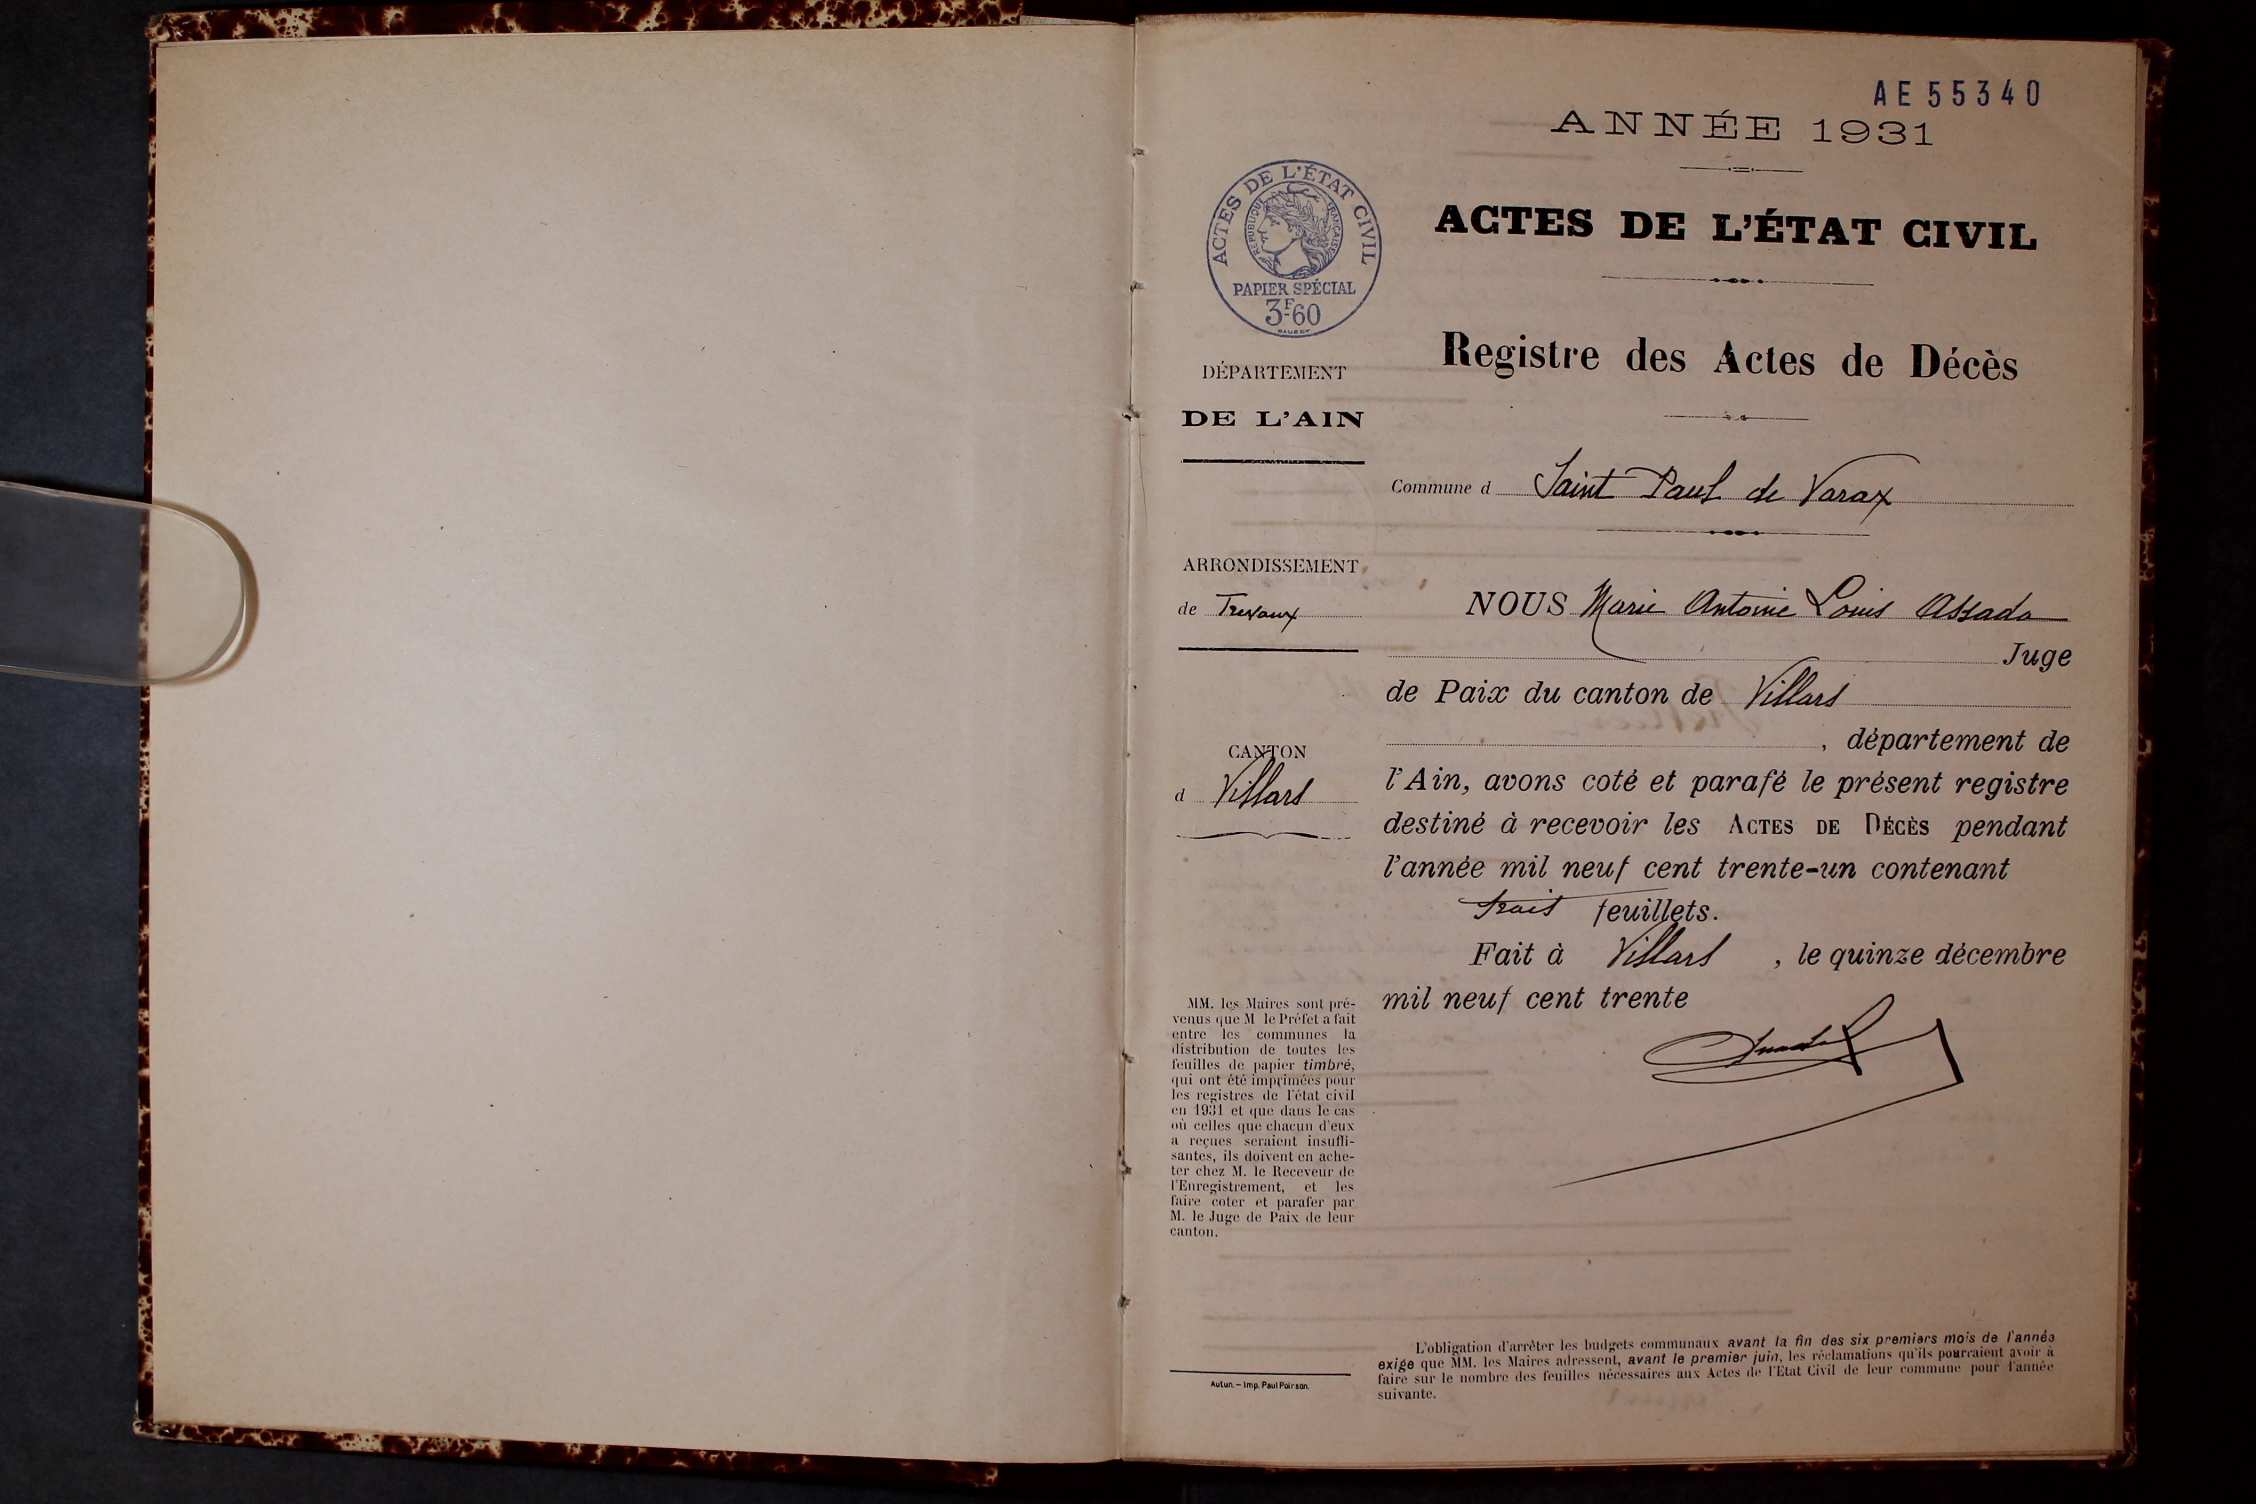 AE 55340
ANNÉE 1931
ACTES DE L'ÉTAT CIVIL
RÉPUBLIQUE FRANÇAISE
PAPIER SPÉCIAL
3F60
ACTES DE L'ÉTAT CIVIL
Registre des Actes de Décès
DÉPARTEMENT
DE L'AIN
Commune d Saint Paul de Varax
ARRONDISSEMENT
de Trevoux
NOUS Marie Antoine Louis Assada
Juge
de Paix du canton de Villars
, département de
CANTON
d Villars
l'Ain, avons coté et parafé le présent registre
destiné à recevoir les ACTES DE DÉCÈS pendant
l'année mil neuf cent trente-un contenant
trois feuillets.
Fait à Villars, le quinze décembre
mil neuf cent trente
MM. les Maires sont pré-
venus que M le Préfet a fait
entre les communes la
distribution de toutes les
feuilles de papier timbré,
qui ont été imprimées pour
les registres de l'état civil
en 1931 et que dans le cas
où celles que chacun d'eux
a reçues seraient insuffi-
santes, ils doivent en ache-
ter chez M. le Receveur de
l'Enregistrement, et les
faire coter et parafer par
M. le Juge de Paix de leur
canton.
Autun. — Imp. Paul Poirson.
L'obligation d'arrêter les budgets communaux avant la fin des six premiers mois de l'année
exige que MM. les Maires adressent, avant le premier juin, les réclamations qu'ils pourraient avoir à
faire sur le nombre des feuilles nécessaires aux Actes de l'Etat Civil de leur commune pour l'année
suivante.